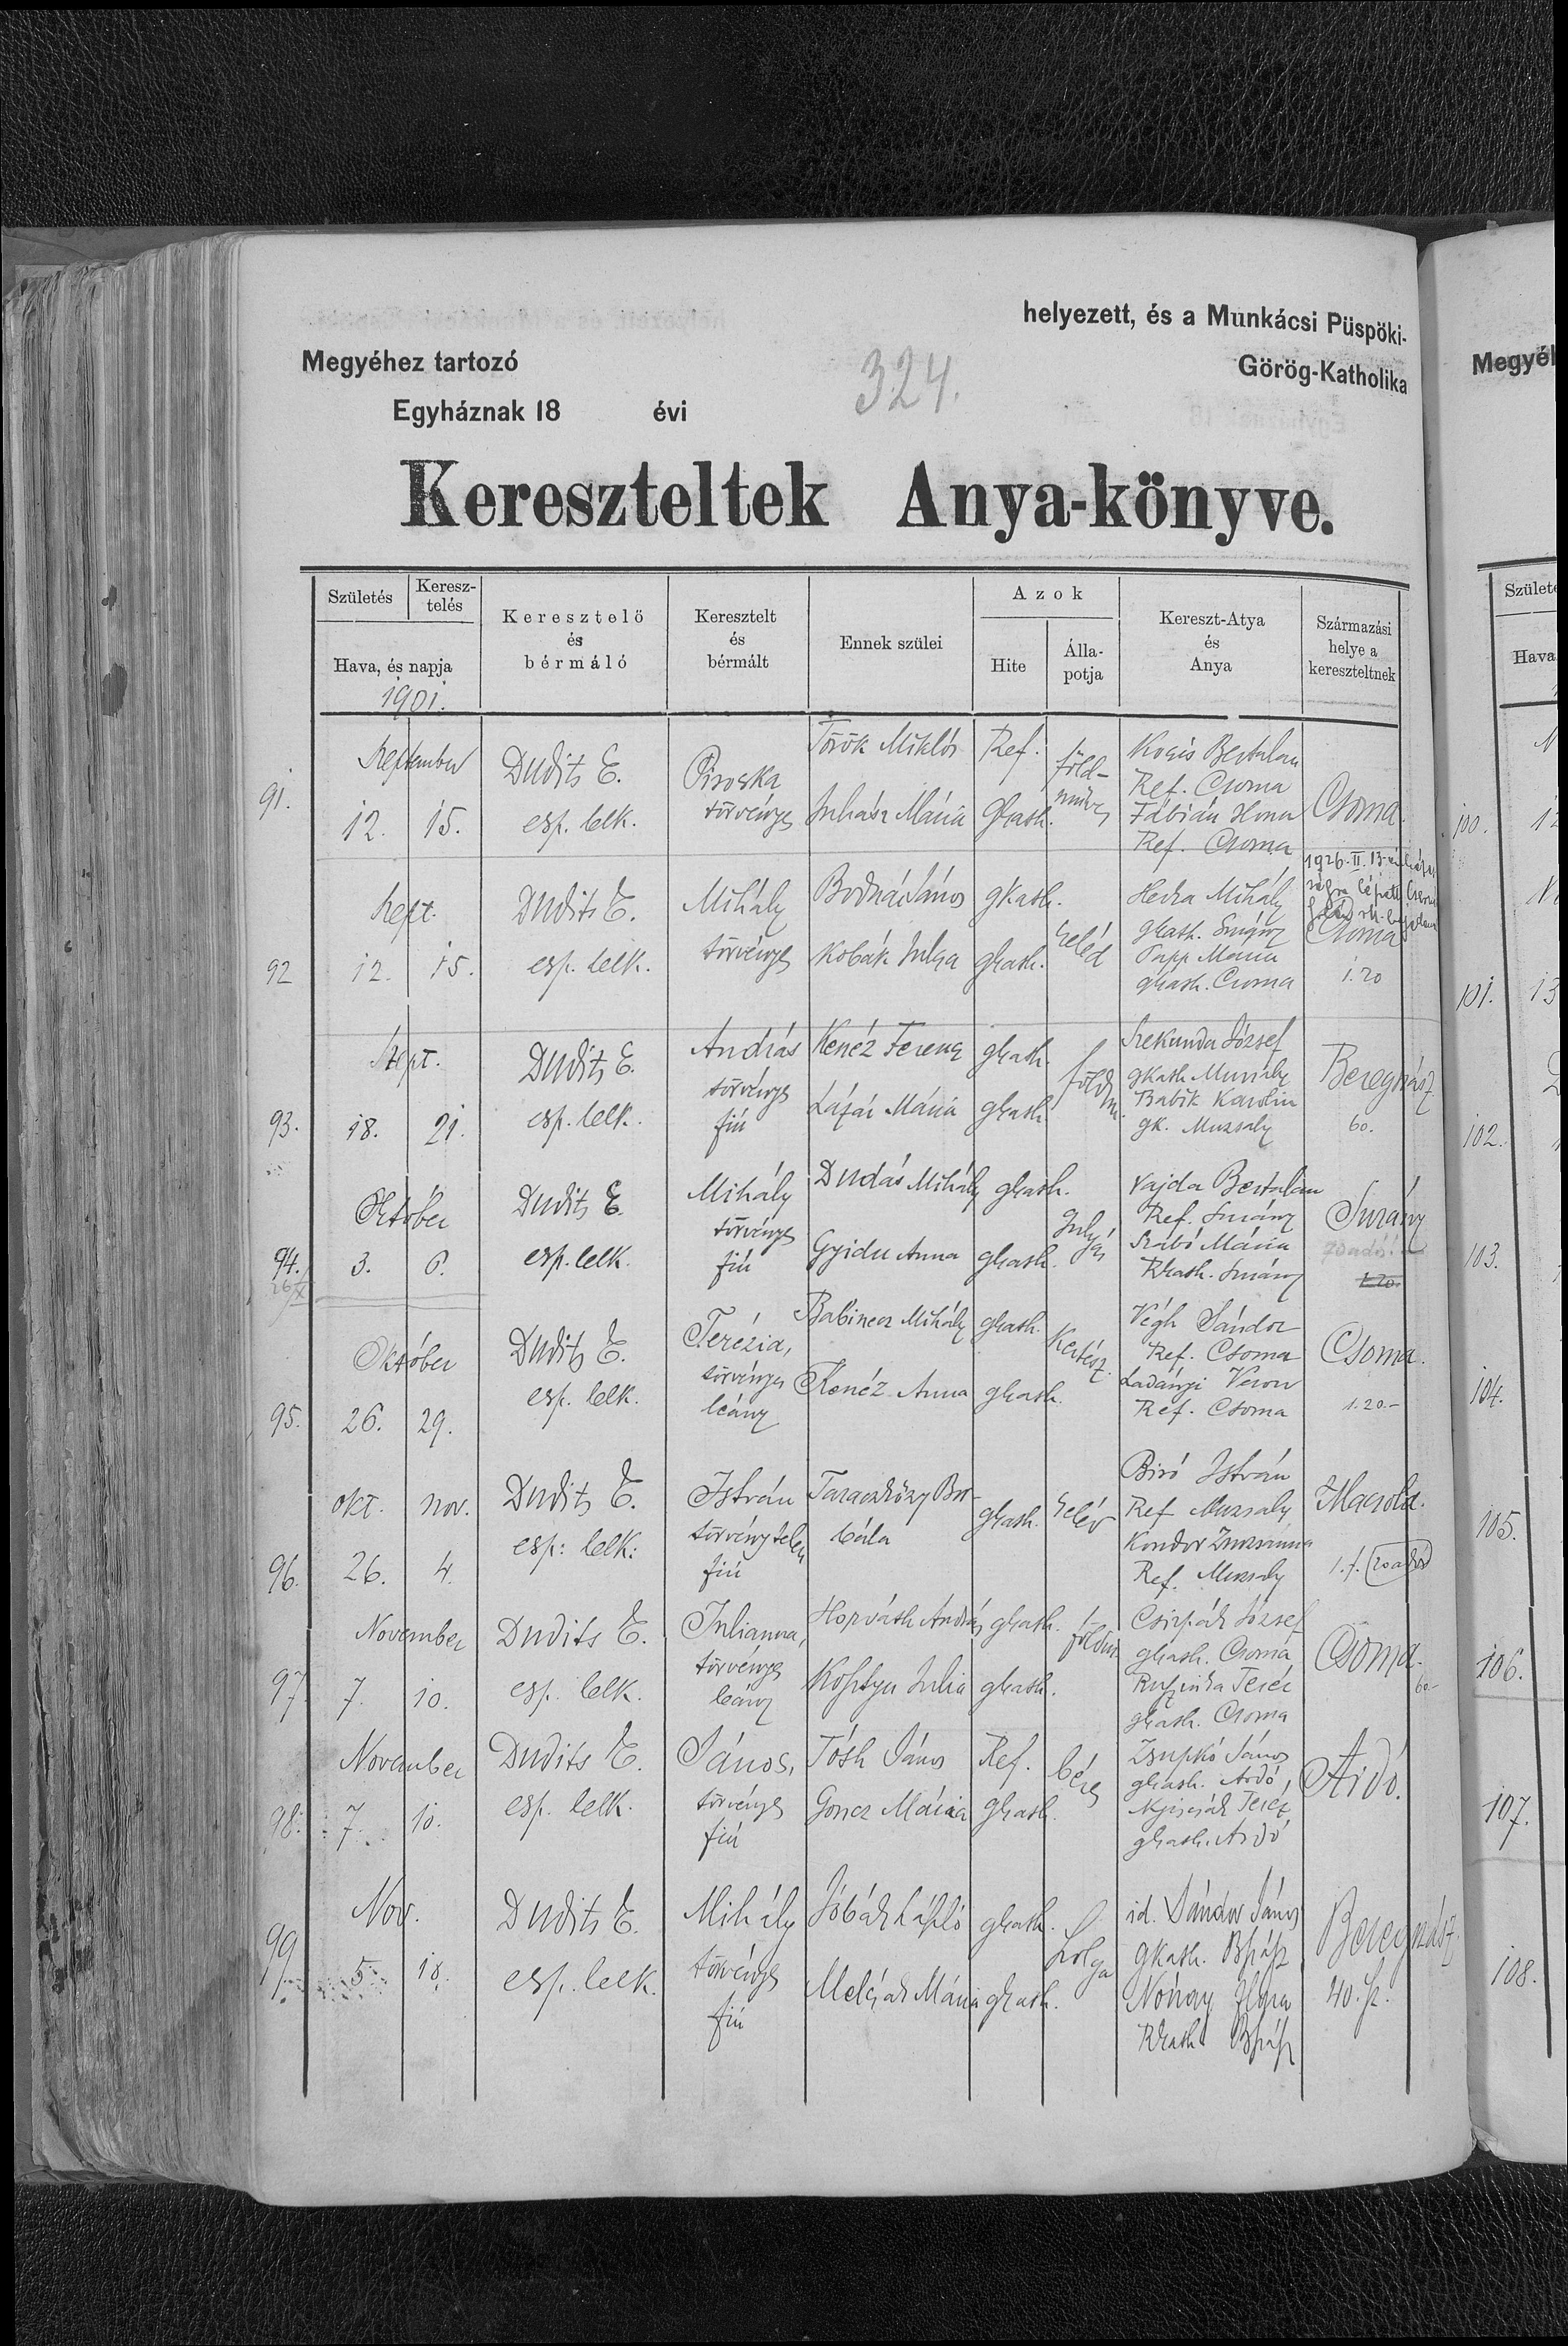 helyezett, és a Munkácsi Püspöki-
Megyéhez tartozó
Görög-Katholika
Egyháznak 18 évi
324.
Kereszteltek Anya-könyve.
Születés
Keresz-
telés
Hava, és napja
1901.
Keresztelö
és
bérmáló
Keresztelt
és
bérmált
Ennek szülei
Azok
Hite
Álla-
potja
Kereszt-Atya
és
Anya
Származási
helye a
kereszteltnek
91.
September
12. 15.
Dudits E.
esp. lelk.
Piroska
törvényes
Török Miklós Ref.
Juhász Mária gkath.
föld-
műves
Kocsis Bertalan
Ref. Csoma
Fábián Ilona
Ref. Csoma
Csoma.
92
Sept.
12. 15.
Dudits E.
esp. lelk.
Mihály
törvényes
Bodnár János gkath.
Kobák Julia gkath.
cseléd
Hedra Mihály
gkath.
Papp Mária
gkath. Csoma
1926. II. 13-án
Csoma
1.20
93.
Sept.
18. 21.
Dudits E.
esp. lelk.
András
törvényes
fiú
Kenéz Ferenc gkath.
Lázár Mária gkath.
földm.
Szekunda József
gkath. Muzsaly
Babik Karolin
gk. Muzsaly
Beregszász
60.
94.
Október
3. 6.
Dudits E.
esp. lelk.
Mihály
törvényes
fiú
Dudás Mihály gkath.
Gyidu Anna gkath.
Gulyás
Vajda Bertalan
Ref. Surány
Szabó Mária
Rkath. Surány
Surány
1.20.
95.
Október
26. 29.
Dudits E.
esp. lelk.
Terézia,
törvényes
leány
Babinecz Mihály gkath.
Kenéz Anna gkath.
Kertész.
Végh Sándor
Ref. Csoma
Ladányi Veron
Ref. Csoma
Csoma.
1.20.-
96.
okt. nov.
26. 4.
Dudits E.
esp: lelk:
István
törvénytelen
fiú
Taraczközy Bor-
bála
gkath.
cseléd
Biró István
Ref Muzsaly
Kondor Zsuzsánna
Ref. Muzsaly
Macsola.
97.
November
7. 10.
Dudits E.
esp. lelk.
Julianna,
törvényes
leány
Horváth András gkath.
Kosztyu Julia gkath.
földm.
Csirpák József
gkath. Csoma
Ruszinka Teréz
gkath. Csoma
Csoma.
60.-
98.
November
7. 10.
Dudits E.
esp. lelk.
János,
törvényes
fiú
Tóth János Ref.
Goncz Mária gkath.
béres
Zsupkó János
gkath. Ardó,
Teréz,
gkath. Ardó
Ardó.
99
Nov.
5. 10.
Dudits E.
esp. lelk.
Mihály
törvényes
fiú
Jóbák László gkath.
Mária gkath.
szolga
id. Sándor János
gkath. Bszász
Ilona
Rkath. Bszász
Beregszász.
Megyéh
Születé
Hava
100. 12
101. 13
102.
103.
104.
105.
106.
107.
108.